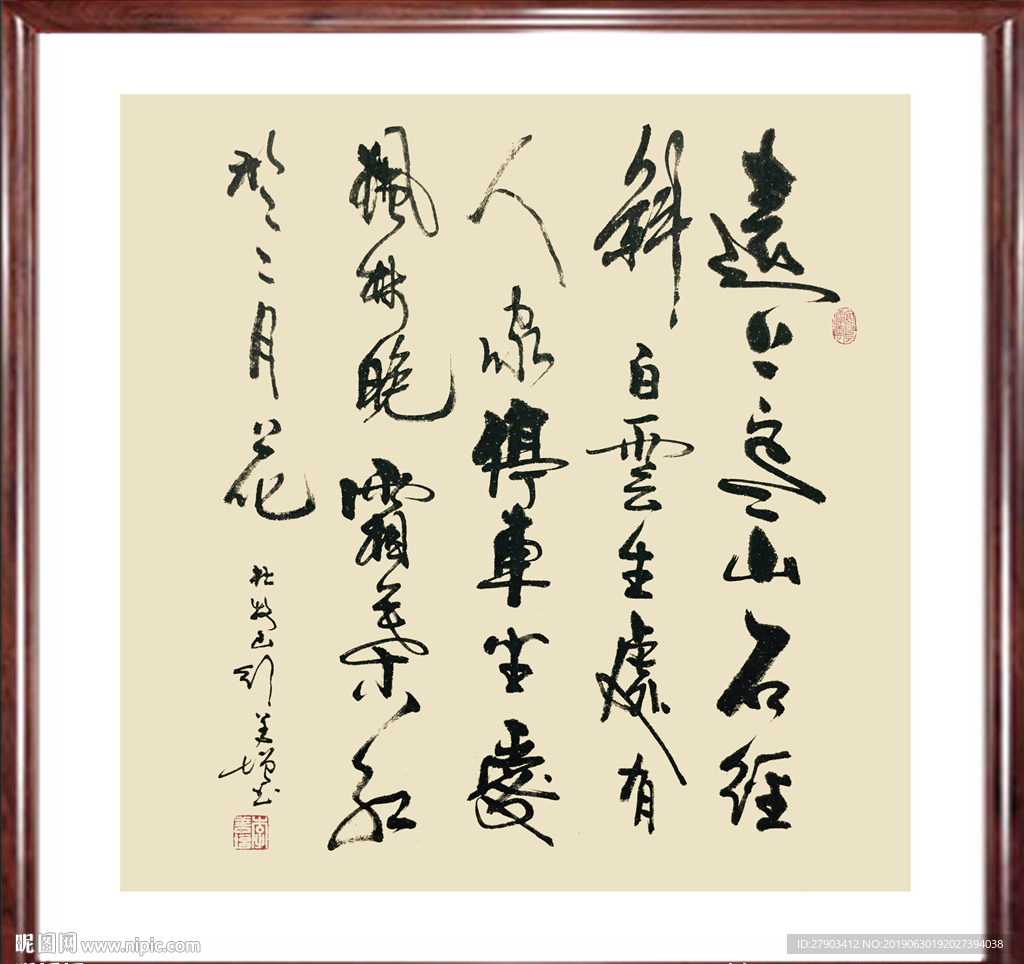 遠上寒山石徑
斜白雲生處有
人家停車坐愛
楓林晚霜葉紅
於二月花
杜牧山行美增书
昵图网 www.nipic.com
ID:27903412 NO:20190630192027394038